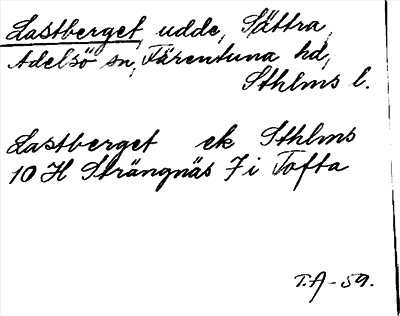 Lastberget, udde, Sättra,
Adelsö sn, Färentuna hd,
Sthlms l.
Lastberget ek Sthlms
10 H Strängnäs 7 i Tofta
T.A - 59.